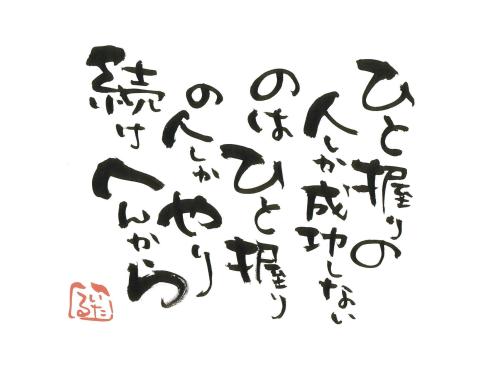 ひと握りの
人しか成功しない
のはひと握り
の人しかやり
続けへんから
いたる